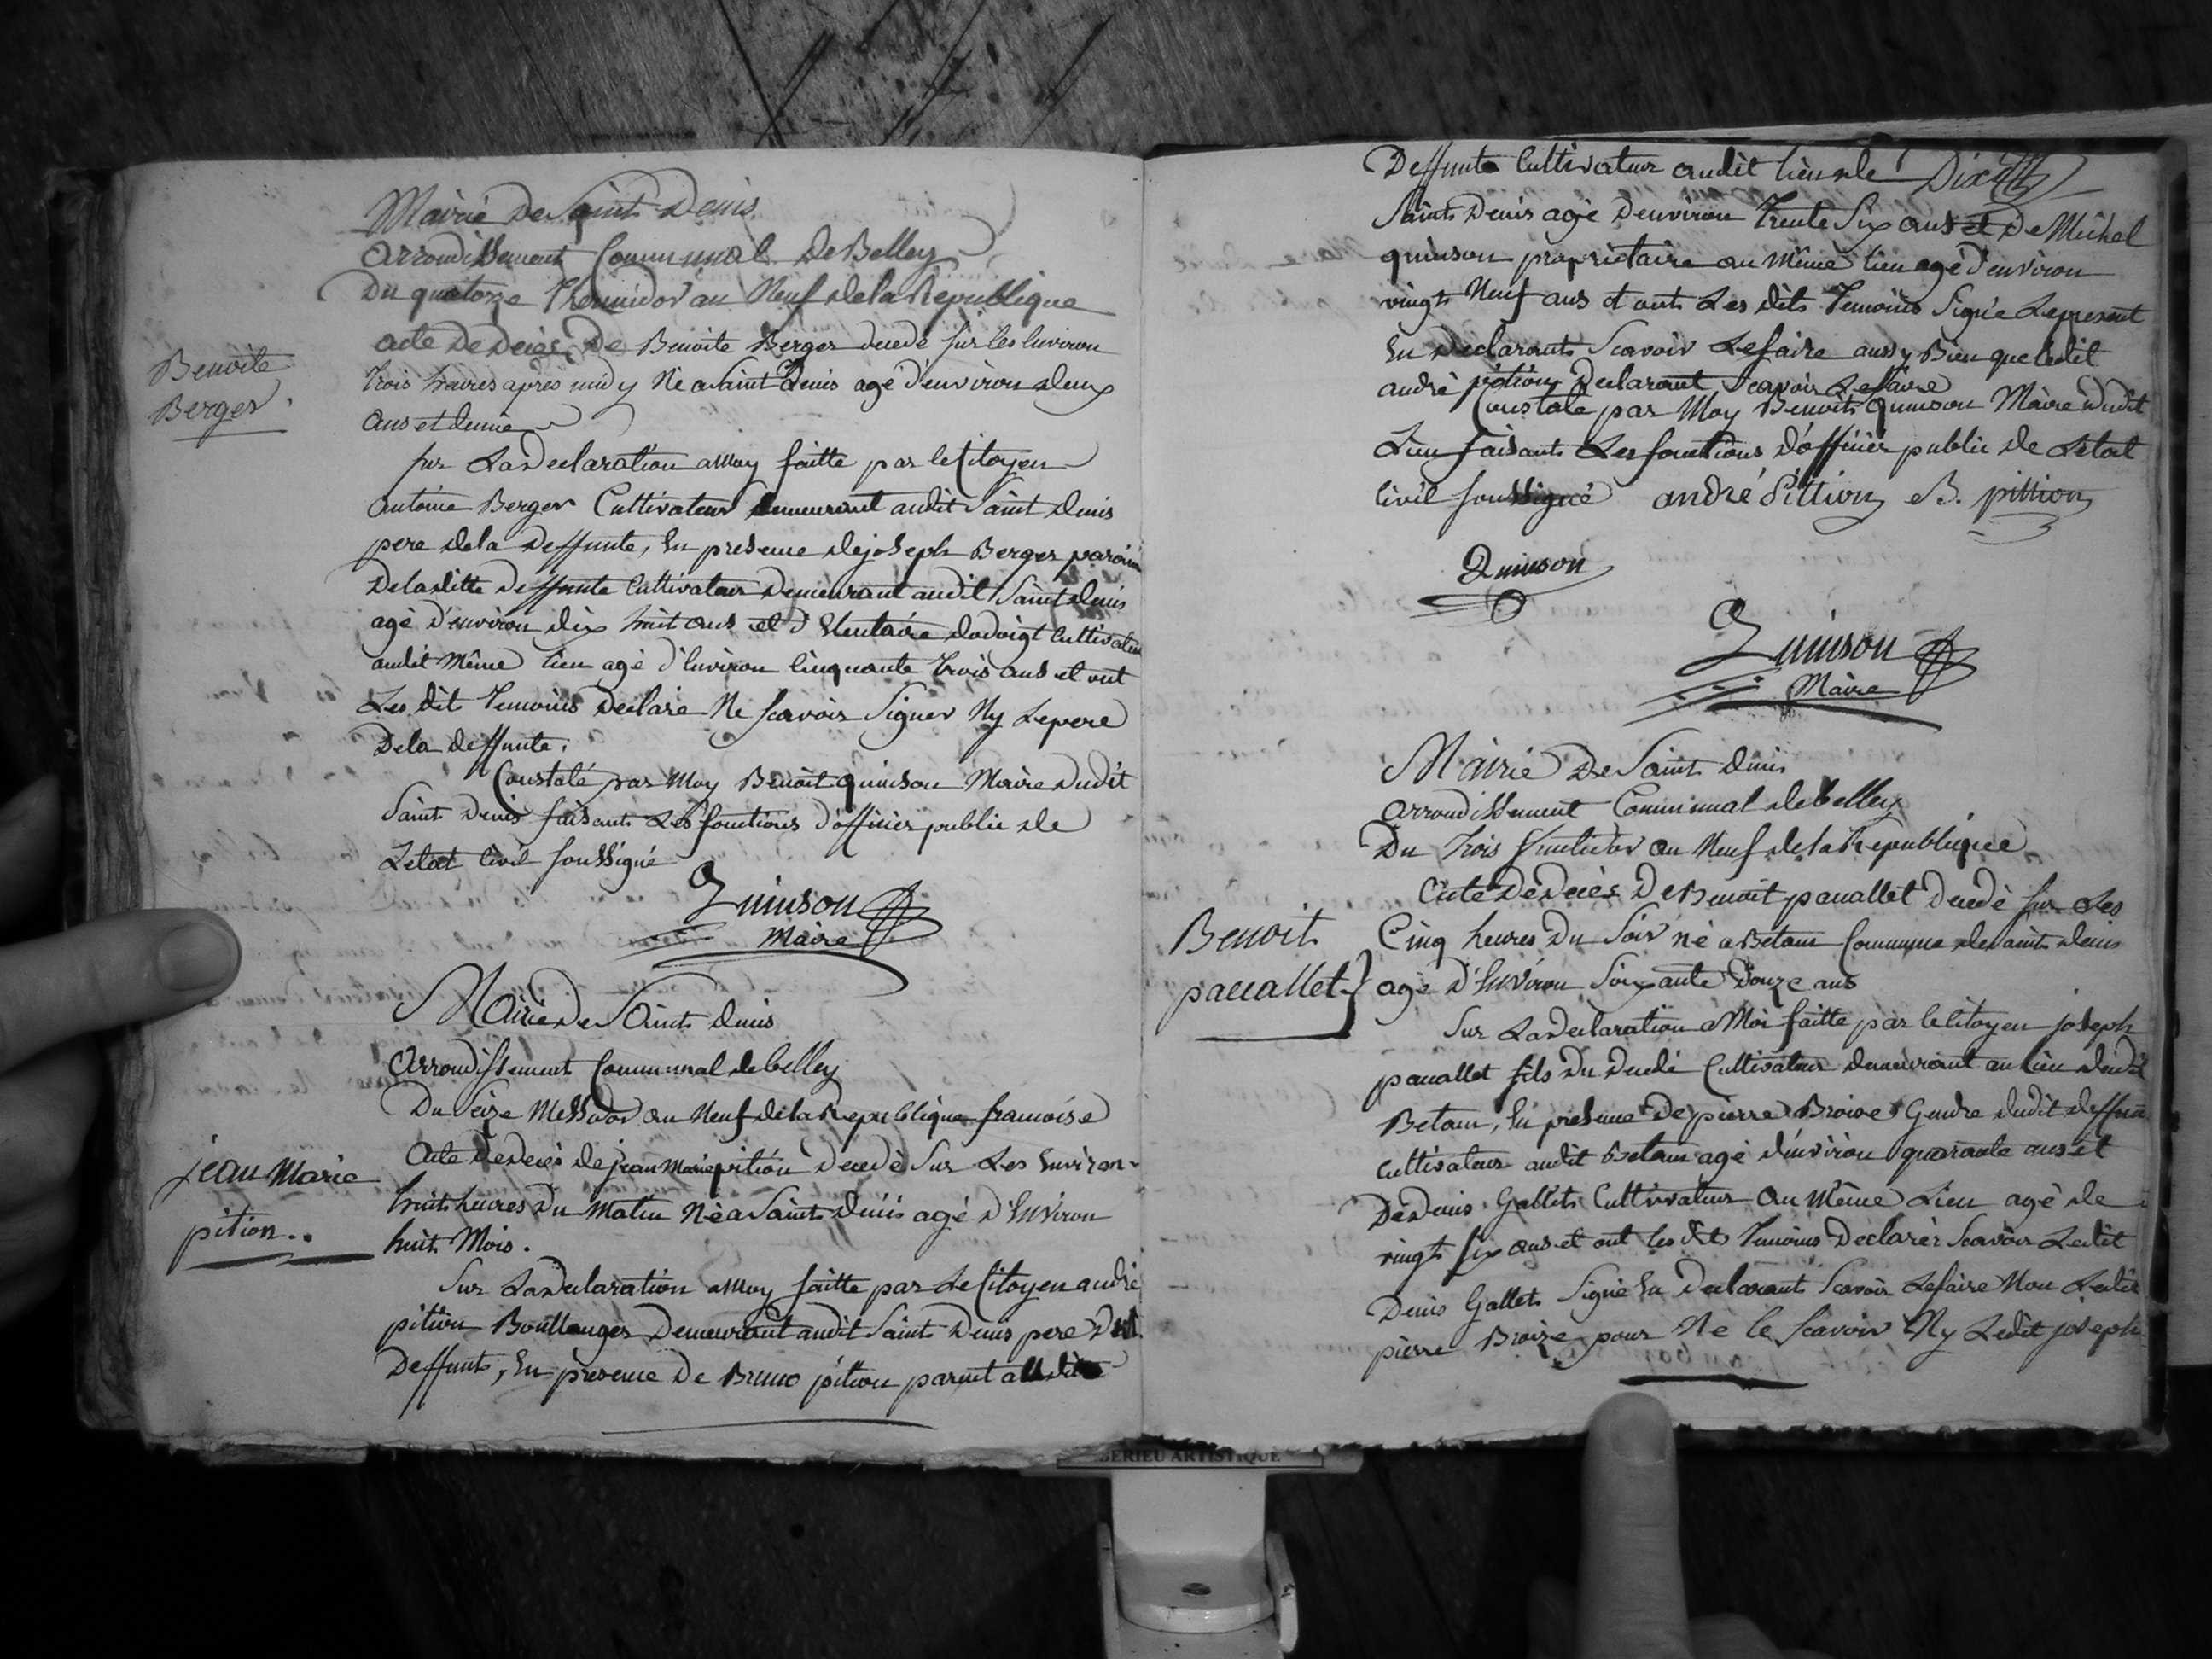 Mairie De Saint Denis
arrondissement Communal De Belley
Du quatorze Thermidor an Neuf de la Republique
Benoite
Berger
acte De Decès De Benoite Berger decedé sur les Environ
trois heures apres midy Né a Saint Denis agé d'environ deux
ans et demie
sur La Declaration a Moy faitte par le Citoyen
antoine Berger Cultivateur demeurant audit Saint denis
pere dela Deffunte, En presence de joseph Berger parain
De laditte Deffunte Cultivateur Demeurant audit Saint denis
agé d'environ dix huit ans et d'
audit Même lieu agé d'Environ Cinquante trois ans et ont
Les dit Temoins Declaré Ne scavoir Signer Ny Le pere
Dela deffunte.
Constaté par Moy Benoit quinson Maire dudit
Saint Denis faisant Les fonctions d'officier public de
Letat Civil soussigné
Quinson
Maire
Mairie De Saint denis
arrondissement Communal de belley
Du Seize Messidor an Neuf de la Republique francoise
jean Marie
pition..
Acte De Decès de jean Marie pition Decedè Sur Les Environ
huit heures Du Matin Nè a Saint denis agé d'Environ
huit Mois.
Sur La declaration a Moy faitte par Le Citoyen andré
pition Boullanger Demeurant audit Saint Denis pere Dud.
Deffunt, En presence De Bruno pition parent audit
Deffunte Cultivateur audit lieu de Dix
Saint Denis agé d'environ Trente Six ans et De Michel
quinson proprietaire au Même lieu agé d'environ
vingt Neuf ans et ont Les dits Temoins Signé Le present
En Declarants Scavoir Le faire aussy Bien que Ledit
andré pition Declarant Scavoir Le faire
Constaté par Moy Benoit quinson Maire dudit
Lieu faisant Les fonctions d'officier public de Letat
Civil soussigné andré Pittion B. pittion
Quinson
Quinson
Maire
Mairie De Saint denis
arrondissement Communal de belley
Du trois fructidor an Neuf de la Republique
Acte De Deces De Benoit pauallet Decedè sur Les
Benoit
pauallet
Cinq heures Du Soir né a Betam Commune de saint denis
agé d'Environ Soixante Douze ans
Sur La Declaration a Moi faitte par le Citoyen joseph
pauallet fils Du decedé Cultivateur demeurant au lieu dudit
Betam, En presence De pierre Broise Gendre dudit deffun
Cultivateur audit Betam agé d'environ quarante ans et
De Denis Gallet Cultivateur au Même Lieu agé de
vingt six ans et ont les dits Temoins Declarèr Scavoir Ledit
Denis Gallet Signé En Declarant Scavoir Le faire Non Ledit
pierre Broise pour Ne le scavoir Ny Ledit joseph
SERIEU ARTISTIQUE